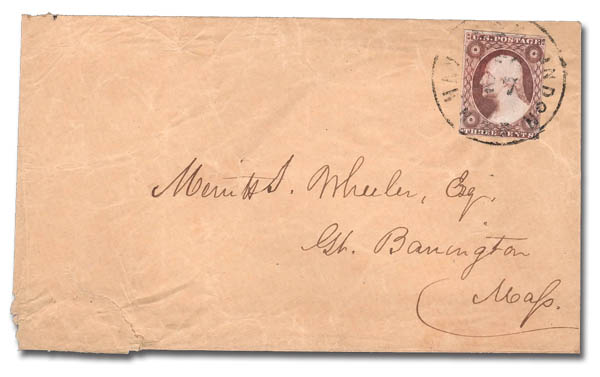 U.S. POSTAGE
THREE CENTS
Merritt S. Wheeler, Esq.
Gt. Barrington
Mass.